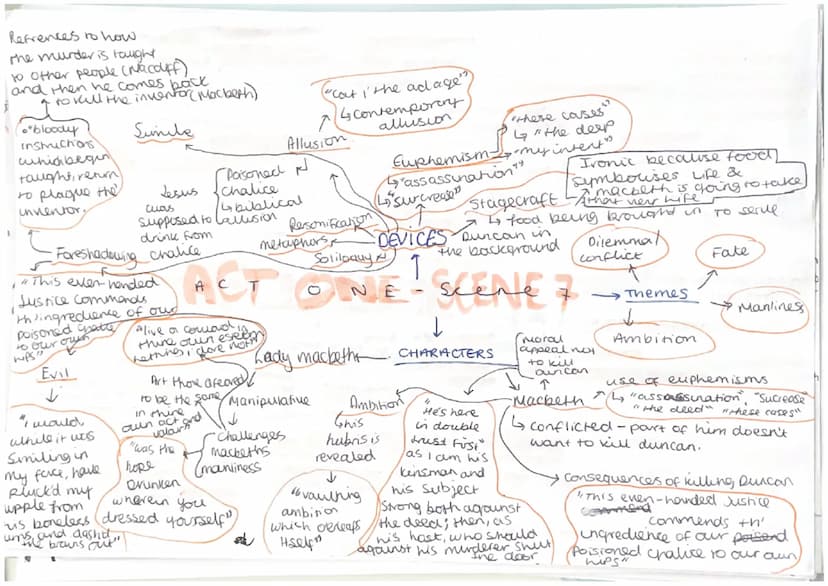 Refrences to how
the murder is taught
to other people (Macduff)
and then he comes back
to kill the inventor (Macbeth)
"bloody
instructions
which being
taught, return
to plague the
inventor.
Foreshadowing
"This even-handed
Justice commends
th'ingredience of our
poisoned chalice
to our own
lips"
Evil
"I would
while it was
smiling in
my face, have
pluck'd my
nipple from
his boneless
gums, and dash'd
the brains out"
Simile
Allusion
"cat i' the adage"
↳ contemporary
allusion
Poisoned
chalice
↳ biblical
allusion
Jesus
was
supposed to
drink from
chalice
Personification
metaphors
Soliloquy
Euphemism
↳ "assassunation"
↳ "surcrease"
"these cases"
↳ "the deep
"my intent"
Stagecraft
↳ food being brought in to serve
Duncan in
the background
Ironic because food
symbolises life &
macbeth is going to take
that very life.
DEVICES
ACT ONE - Scene 7
ACT ONE-SCENE 7
THEMES
Dilemma/
conflict
Fate
Manliness
Ambition
CHARACTERS
Lady macbeth
"live a coward in
thine own esteem
Manipulative
Art thou afeard
to be the same
in thine
own act and
valour
challenges
macbeths
manliness
"was the
hope
drunken
wherein you
dressed yourself"
Macbeth
moral
appeal not
to kill
duncan
Ambition
↳ his
hubris is
revealed
"vaulting
ambition
which o'erleaps
itself"
"He's here
in double
trust First,
as I am his
kinsman and
his subject
Strong both against
the deed; then, as
his host, who should
against his murderer shut
the door
use of euphemisms
↳ "assassunation", "sucrease"
"the deed" "these cases"
↳ conflicted - part of him doesn't
want to kill duncan.
consequences of killing Duncan
"This even-handed Justice
commends th'
ingredience of our
poisioned chalice to our own
lips"